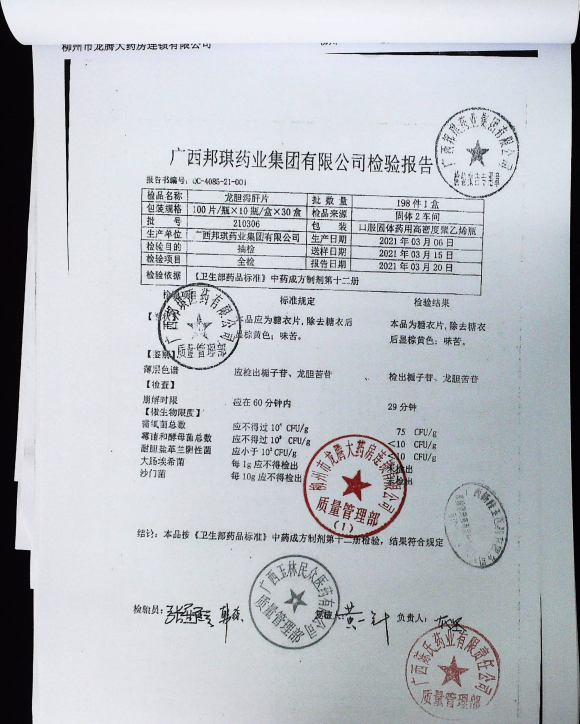 柳州市龙腾大药房连锁有限公司
广西邦琪药业集团有限公司检验报告
报告书编号：QC-4085-21-001
检品名称 龙胆泻肝片 批数量 198件1盒
包装规格 100片/瓶×10瓶/盒×30盒 检品来源 固体2车间
批号 210306 包装 口服固体药用高密度聚乙烯瓶
生产单位 广西邦琪药业集团有限公司 生产日期 2021年03月06日
检验目的 抽检 送样日期 2021年03月15日
检验项目 全检 报告日期 2021年03月20日
检验依据 《卫生部药品标准》中药成方制剂第十二册
标准规定 检验结果
本品应为糖衣片，除去糖衣后 本品为糖衣片，除去糖衣
显棕黄色；味苦。 后显棕黄色；味苦。
【鉴别】
薄层色谱 应检出栀子苷、龙胆苦苷 检出栀子苷、龙胆苦苷
【检查】
崩解时限 应在60分钟内 29分钟
【微生物限度】
需氧菌总数 应不得过 CFU/g 75 CFU/g
霉菌和酵母菌总数 应不得过 CFU/g <10 CFU/g
耐胆盐革兰阴性菌 应小于 CFU/g <10 CFU/g
大肠埃希菌 每1g应不得检出 未检出
沙门菌 每10g应不得检出 未检出
结论：本品按《卫生部药品标准》中药成方制剂第十二册检验，结果符合规定
检验员： 负责人：
广西邦琪药业集团有限公司
检验报告专用章
质量管理部
柳州市龙腾大药房连锁有限公司
质量管理部
(1)
广西玉林民众医药有限公司
质量管理部
质量管理部